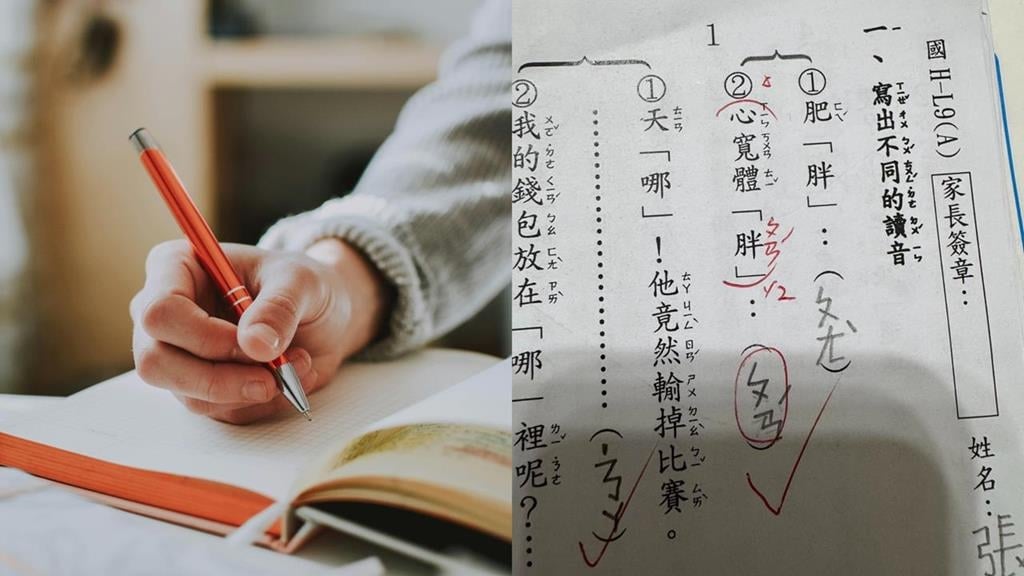 國 H-L9(A)
家長簽章：
姓名：張
一、寫出不同的讀音
1
①肥「胖」：（ㄆㄤˋ）
②心寬體「胖」：（ㄆㄢˊ）
ㄆㄢˊ
x2
①天「哪」！他竟然輸掉比賽。
………………（˙ㄋㄚ）
②我的錢包放在「哪」裡呢？……